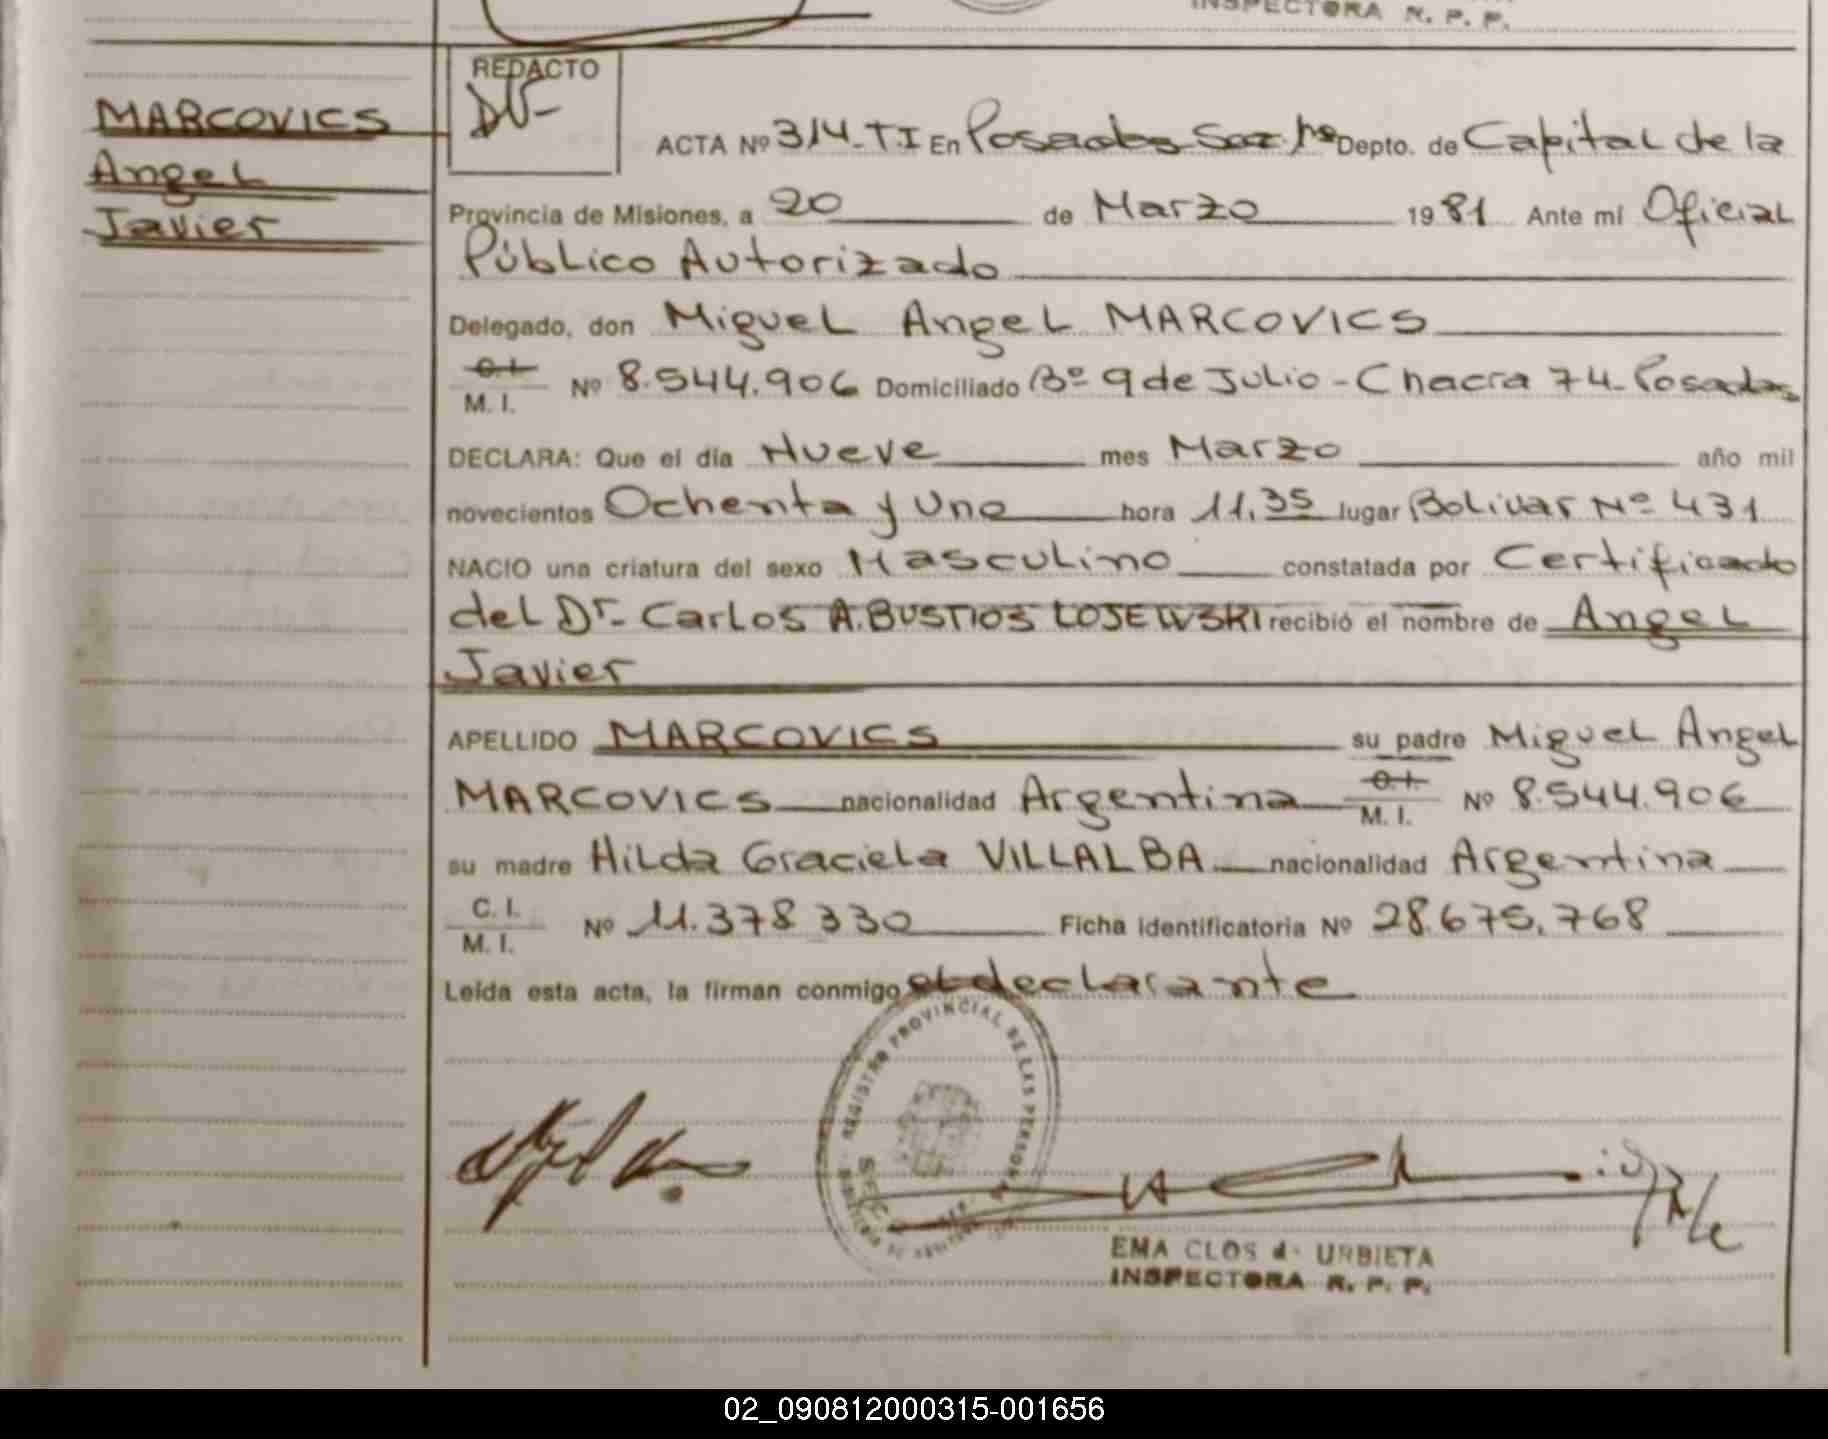 INSPECTORA R. P. P.
REDACTO
MARCOVICS
Angel
Javier
ACTA Nº 314-T.I En Posadas Depto. de Capital de la
Provincia de Misiones, a 20 de Marzo 1981 Ante mí Oficial
Público Autorizado
Delegado, don Miguel Angel MARCOVICS
C.I.
M. I. Nº 8.544.906 Domiciliado Bº 9 de Julio - Chacra 74 - Posadas
DECLARA: Que el día Nueve mes Marzo año mil
novecientos Ochenta y Uno hora 11,35 lugar Bolivar Nº 431
NACIO una criatura del sexo Masculino constatada por Certificado
del Dr. Carlos A. BUSTIOS LOJEWSKI recibió el nombre de Angel
Javier
APELLIDO MARCOVICS su padre Miguel Angel
MARCOVICS nacionalidad Argentina C.I. M. I. Nº 8.544.906
su madre Hilda Graciela VILLALBA nacionalidad Argentina
C. I.
M. I. Nº 11.378.330 Ficha identificatoria Nº 28.675.768
Leída esta acta, la firman conmigo el declarante
REGISTRO PROVINCIAL DE LAS PERSONAS
EMA CLOS d. URBIETA
INSPECTORA R. P. P.
02_090812000315-001656